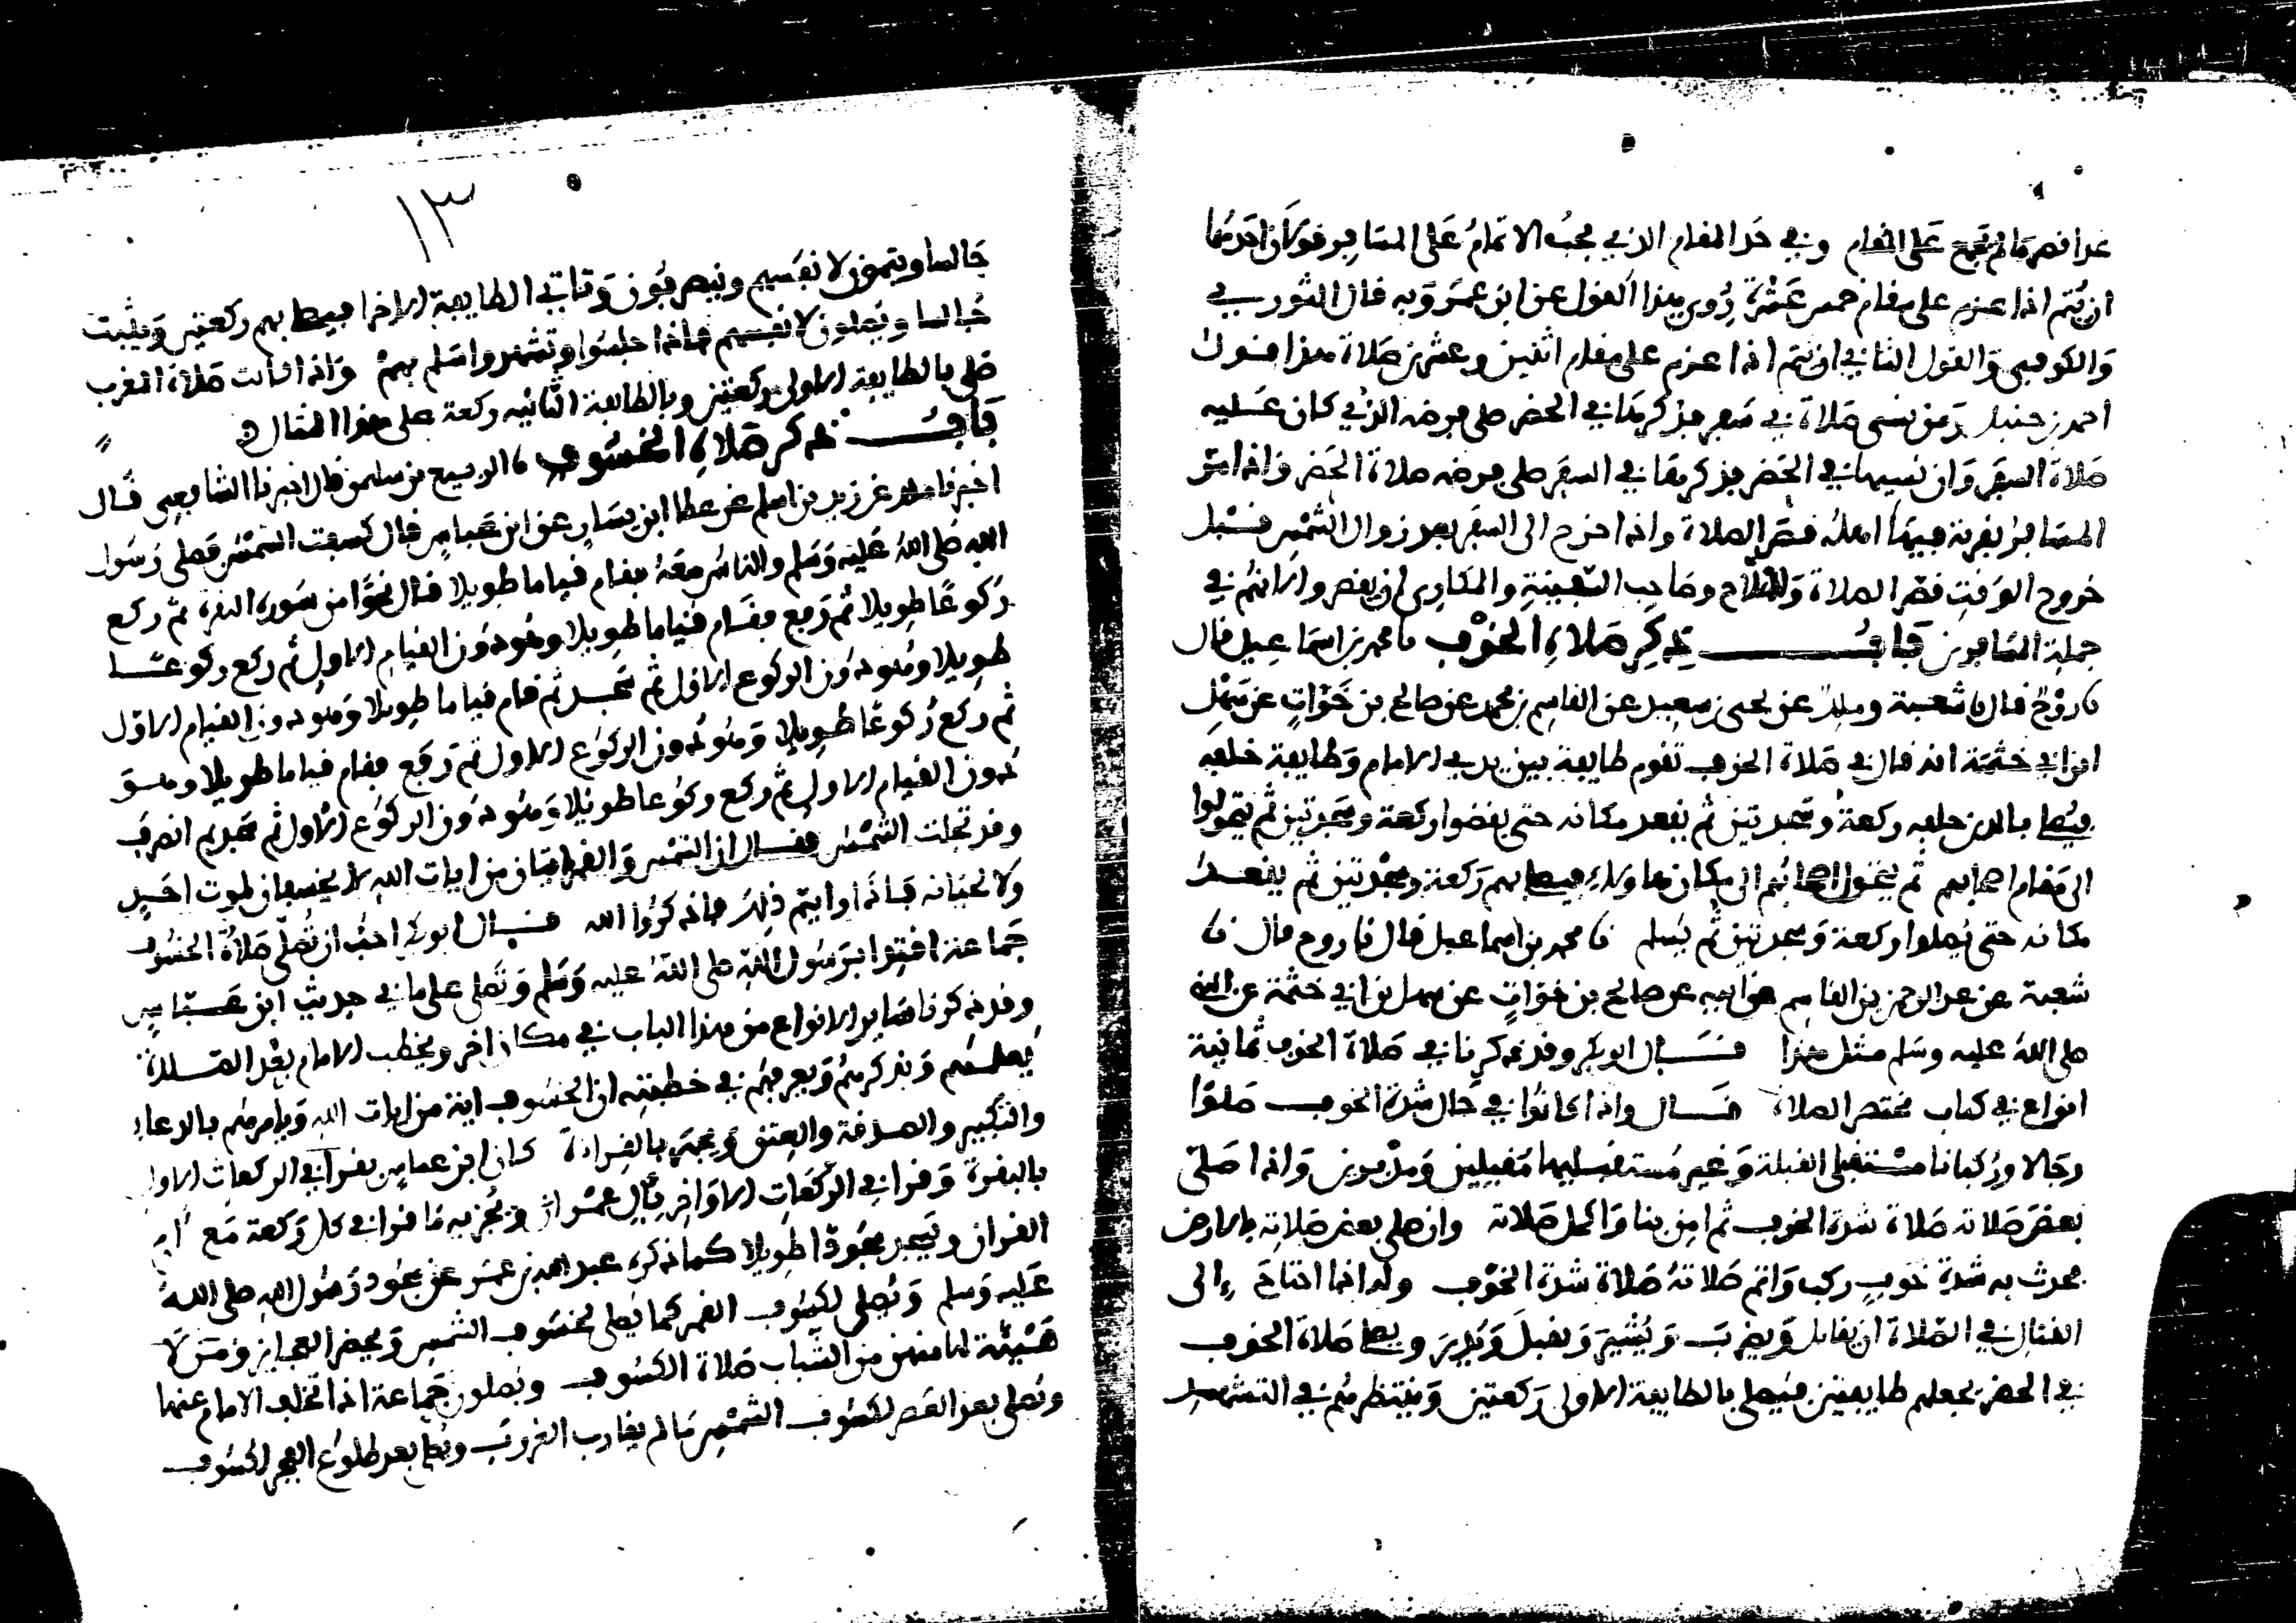 غدا قصر ما لم يجمع على المقام وفي حد المقام الذي يجب الاتمام على المسافر قولان احدهما
ان يتم اذا عزم على مقام خمس عشرة روي هذا القول عن ابن عمر وبه قال الثوري
والكوفي والقول الثاني ان يتم اذا عزم على مقام اثنين وعشرين صلاة هذا قول
احمد بن حنبل ومن نسي صلاة في سفر فذكرها في الحضر صلى فرضه الذي كان عليه
صلاة السفر وان نسيها في الحضر فذكرها في السفر صلى فرضه صلاة الحضر واذا مر
المسافر بقرية فيها اهله قصر الصلاة واذا خرج الى السفر بعد زوال الشمس قبل
خروج الوقت قصر الصلاة وللملاح وصاحب السفينة والمكاري ان يقصروا لانهم في
جملة المسافرين باب ذكر صلاة الخوف نا محمد بن اسماعيل قال
نا روح قال نا شعبة وملك عن يحيى بن سعيد عن القاسم بن محمد عن صالح بن خوات عن سهل
ابن ابي حثمة انه قال في صلاة الخوف تقوم طايفة بين يدي الامام وطايفة خلفه
فيصلي بالذين خلفه ركعة وسجدتين ثم يقعد مكانه حتى يقضوا ركعة وسجدتين ثم يتحولوا
الى مقام اصحابهم ثم يتحول اصحابهم الى مكان هاولاء فيصلي بهم ركعة وسجدتين ثم يقعد
مكانه حتى يصلوا ركعة وسجدتين ثم يسلم نا محمد بن اسماعيل قال نا روح قال نا
شعبة عن عبد الرحمن بن القاسم عن ابيه عن صالح بن خوات عن سهل بن ابي حثمة عن النبي
صلى الله عليه وسلم مثل هذا قال ابو بكر وقد ذكرنا في صلاة الخوف ثمانية
انواع في كتاب مختصر الصلاة قال واذا كانوا في حال شدة الخوف صلوا
رجالا وركبانا مستقبلي القبلة وغير مستقبليها مقبلين ومدبرين واذا صلى
بعض صلاته صلاة شدة الخوف ثم امن بنا واكمل صلاته وان صلى بعض صلاته بالارض
فحدث به شدة خوف ركب واتم صلاته صلاة شدة الخوف وله اذا احتاج الى
القتال في الصلاة ان يقاتل ويضرب ويشير ويقبل ويدبر ويصلي صلاة الخوف
في الحضر يجعلهم طايفتين فيصلي بالطايفة الاولى ركعتين وينتظرهم في التشهد
١٣
جالسا ويتمون لانفسهم وينصرفون وتاتي الطايفة الاخرا فيصلي بهم ركعتين ويثبت
جالسا ويصلون لانفسهم فاذا جلسوا وتشهدوا سلم بهم واذا كانت صلاة المغرب
صلى بالطايفة الاولى ركعتين وبالطايفة الثانيه ركعة على هذا المثال
باب ذكر صلاة الخسوف نا الربيع بن سليمن قال اخبرنا الشافعي قال
اخبرنا ملك عن زيد بن اسلم عن عطا ابن يسار عن ابن عباس قال كسفت الشمس فصلى رسول
الله صلى الله عليه وسلم والناس معه فقام قياما طويلا قال نحوا من سورة البقرة ثم ركع
ركوعا طويلا ثم رفع فقام قياما طويلا وهو دون القيام الاول ثم ركع ركوعا
طويلا وهو دون الركوع الاول ثم سجد ثم قام قياما طويلا وهو دون القيام الاول
ثم ركع ركوعا طويلا وهو دون الركوع الاول ثم رفع فقام قياما طويلا وهو
دون القيام الاول ثم ركع ركوعا طويلا وهو دون الركوع الاول ثم سجد ثم انصرف
وقد تجلت الشمس فقال ان الشمس والقمر ايتان من ايات الله لا يخسفان لموت احد
ولا لحياته فاذا رايتم ذلك فاذكروا الله قال ابو بكر احب ان تصلى صلاة الخسوف
جماعة اقتدوا برسول الله صلى الله عليه وسلم وتصلى على ما في حديث ابن عباس
وقد ذكرنا ساير الانواع من هذا الباب في مكان اخر ويخطب الامام بعد الصلاة
يعلمهم ويذكرهم ويعرفهم في خطبته ان الخسوف اية من ايات الله ويامرهم بالدعاء
والتكبير والصدقة والعتق ويجهر بالقراءة كان ابن عباس يقرا في الركعات الاول
بالبقرة وقرا في الركعات الاواخر بال عمران ويجزيه ما قرا في كل ركعة مع ام
القران ويسجد سجودا طويلا كما ذكره عبد الله بن عمر عن سجود رسول الله صلى الله
عليه وسلم ويصلي لكسوف القمر كما يصلي لخسوف الشمس ويحضر العجايز ومن لا
هيئة لها منهن من الشباب صلاة الكسوف ويصلون جماعة اذا تخلف الامام عنها
وتصلى بعد العصر لكسوف الشمس ما لم يقارب الغروب ويصلي بعد طلوع الفجر لخسوف